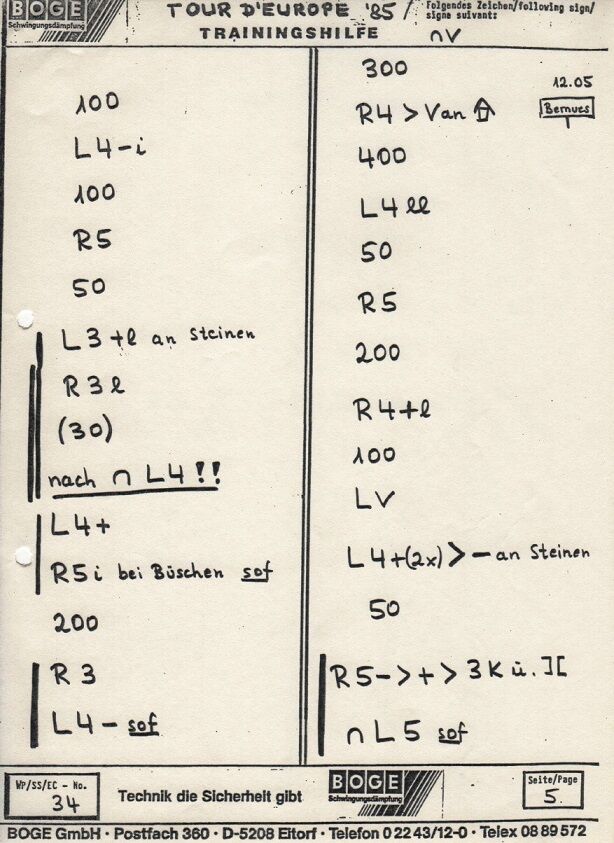 BOGE
Schwingungsdämpfung
TOUR D'EUROPE '85 /
TRAININGSHILFE
Folgendes Zeichen/following sign/
signe suivant:
∩V
100
L4-i
100
R5
50
L3+l an Steinen
R3l
(30)
nach ∩ L4!!
L4+
R5i bei Büschen sof
200
R3
L4- sof
300
12.05
R4 > V an ⇧
Bernues
400
L4ll
50
R5
200
R4+l
100
LV
L4+(2x) > - an Steinen
50
R5- > + > 3K ü. ][
∩ L5 sof
WP/SS/EC - No.
34
Technik die Sicherheit gibt
BOGE
Schwingungsdämpfung
Seite/Page
5
BOGE GmbH · Postfach 360 · D-5208 Eitorf · Telefon 0 22 43/12-0 · Telex 08 89 572